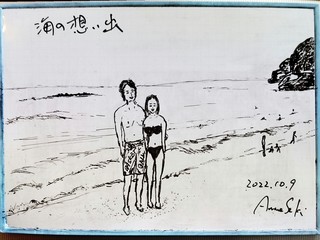 海の想い出
2022.10.9